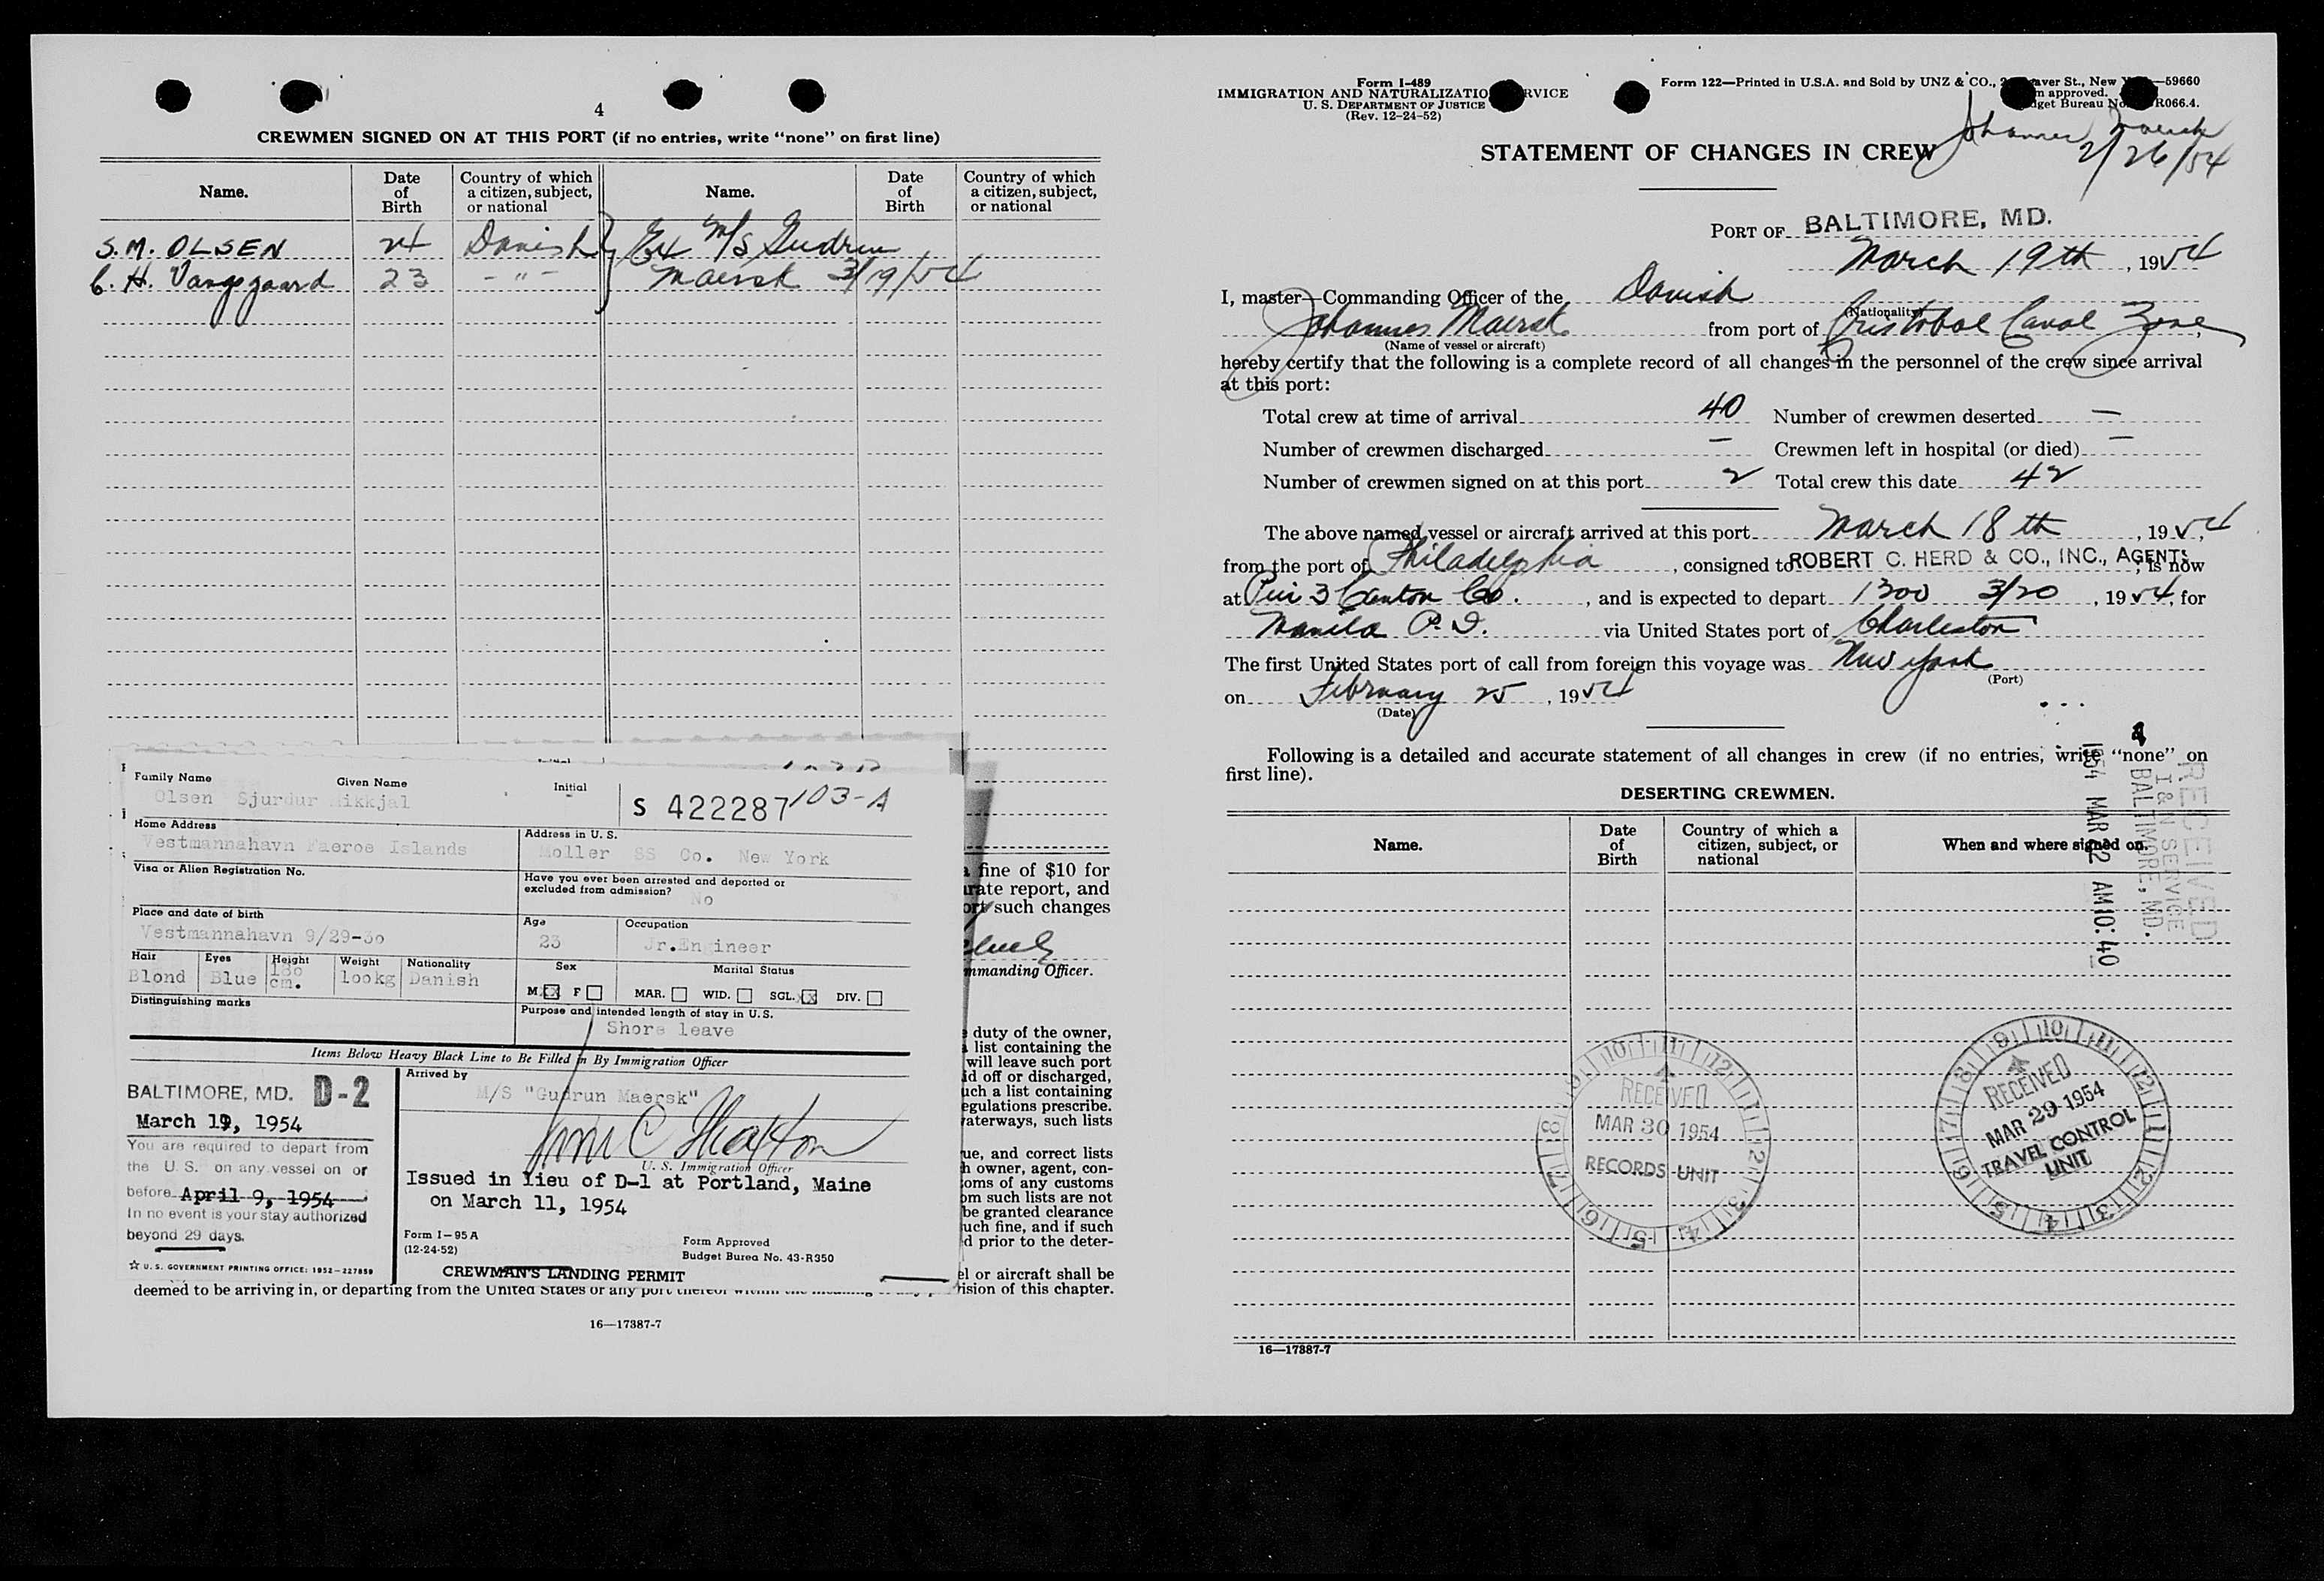 4
CREWMEN SIGNED ON AT THIS PORT (if no entries, write "none" on first line)
Name. Date of Birth Country of which a citizen, subject, or national Name. Date of Birth Country of which a citizen, subject, or national
S. M. OLSEN 24 Danish Ex M/S Gudrun
C. H. Vangsgaard 23 - " - Maersk 3/19/54
Family Name Given Name Initial
Olsen Sjurdur Mikkjal - S 422287 103-A
Home Address Address in U. S.
Vestmannahavn Faeroe Islands Moller SS Co. New York
Visa or Alien Registration No. Have you ever been arrested and deported or
excluded from admission?
No
Place and date of birth Age Occupation
Vestmannahavn 9/29-30 23 Jr.Engineer
Hair Eyes Height Weight Nationality Sex Marital Status
Blond Blue 180 cm. 100kg Danish M. F MAR. WID. SGL. DIV.
Distinguishing marks Purpose and intended length of stay in U.S.
Shore leave
Items Below Heavy Black Line to Be Filled in By Immigration Officer
BALTIMORE, MD. D-2 Arrived by
M/S "Gudrun Maersk"
March 19, 1954
You are required to depart from
the U. S. on any vessel on or
U. S. Immigration Officer
before April 9, 1954
In no event is your stay authorized
beyond 29 days.
Issued in lieu of D-1 at Portland, Maine
on March 11, 1954
Form I-95A
(12-24-52)
Form Approved
Budget Burea No. 43-R350
☆ U. S. GOVERNMENT PRINTING OFFICE: 1952-227859
CREWMAN'S LANDING PERMIT
fine of $10 for
rate report, and
ort such changes
mmanding Officer.
duty of the owner,
list containing the
will leave such port
id off or discharged,
uch a list containing
egulations prescribe.
aterways, such lists
ue, and correct lists
h owner, agent, con-
oms of any customs
om such lists are not
be granted clearance
uch fine, and if such
d prior to the deter-
el or aircraft shall be
deemed to be arriving in, or departing from the United States or any port thereof within the meaning vision of this chapter.
16—17387-7
Form I-489
IMMIGRATION AND NATURALIZATIO RVICE
U. S. DEPARTMENT OF JUSTICE
(Rev. 12-24-52)
Form 122—Printed in U.S.A. and Sold by UNZ & CO., 2 aver St., New Y —59660
m approved.
dget Bureau No. R066.4.
Johannes Maersk
2/26/54
STATEMENT OF CHANGES IN CREW
PORT OF BALTIMORE, MD.
March 19th, 1954
I, master—Commanding Officer of the Danish
(Nationality)
Johannes Maersk from port of Cristobal Canal Zone,
(Name of vessel or aircraft)
hereby certify that the following is a complete record of all changes in the personnel of the crew since arrival
at this port:
Total crew at time of arrival 40 Number of crewmen deserted —
Number of crewmen discharged — Crewmen left in hospital (or died) —
Number of crewmen signed on at this port 2 Total crew this date 42
The above named vessel or aircraft arrived at this port March 18th, 1954,
from the port of Philadelphia, consigned to ROBERT C. HERD & CO., INC., AGENTS, is now
at Pier 3 Canton Co., and is expected to depart 1300 3/20, 1954, for
Manila P. I. via United States port of Charleston
The first United States port of call from foreign this voyage was New York
(Port)
on February 25, 1954
(Date)
Following is a detailed and accurate statement of all changes in crew (if no entries, write "none" on
first line).
DESERTING CREWMEN.
Name. Date of Birth Country of which a citizen, subject, or national When and where signed on.
RECEIVED
I & N SERVICE
BALTIMORE, MD.
1954 MAR 22 AM 10:40
RECEIVED
MAR 30 1954
RECORDS UNIT
RECEIVED
MAR 29 1954
TRAVEL CONTROL
UNIT
16—17387-7